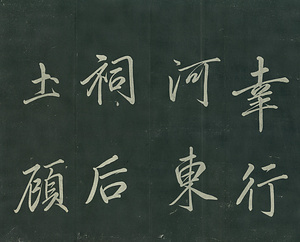 幸行
河東
祠后
土顧